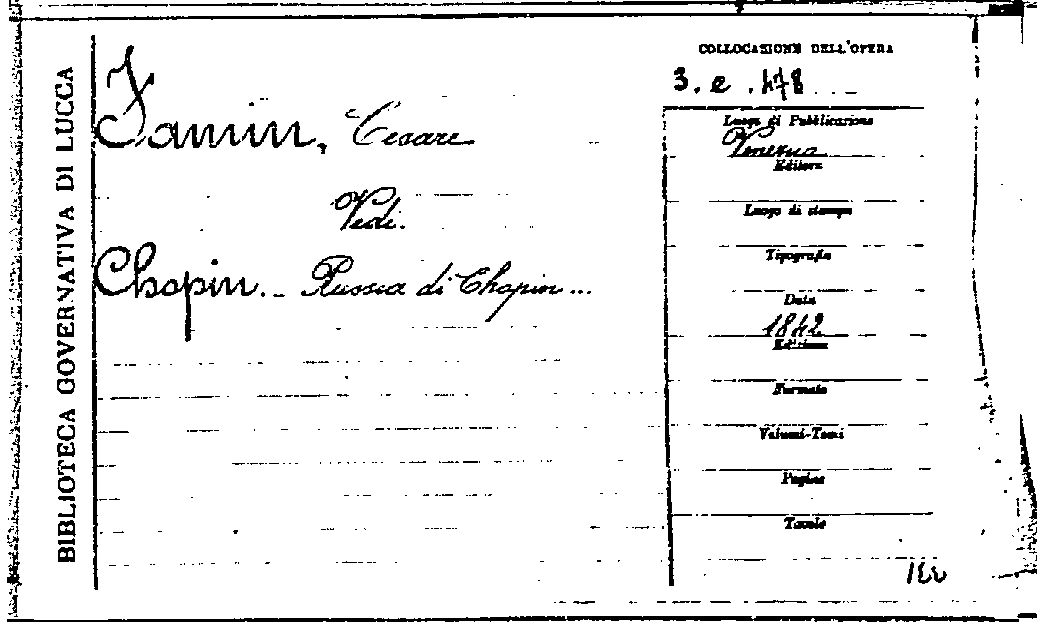 BIBLIOTECA GOVERNATIVA DI LUCCA
Famin, Cesare
Vedi.
Chopin. - Russia di Chopin...
COLLOCAZIONE DELL'OPERA
3. e. 478
Luogo di Pubblicazione
Venezia
Editore
Luogo di stampa
Tipografia
Data
1842
Edizione
Formato
Volumi-Tomi
Pagine
Tavole